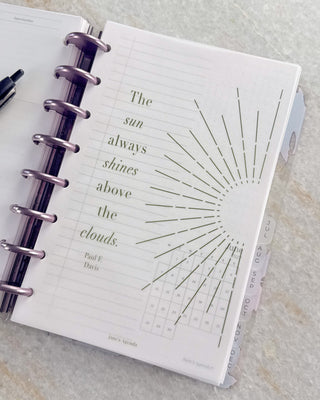 The
sun
always
shines
above
the
clouds.
Paul F.
Davis